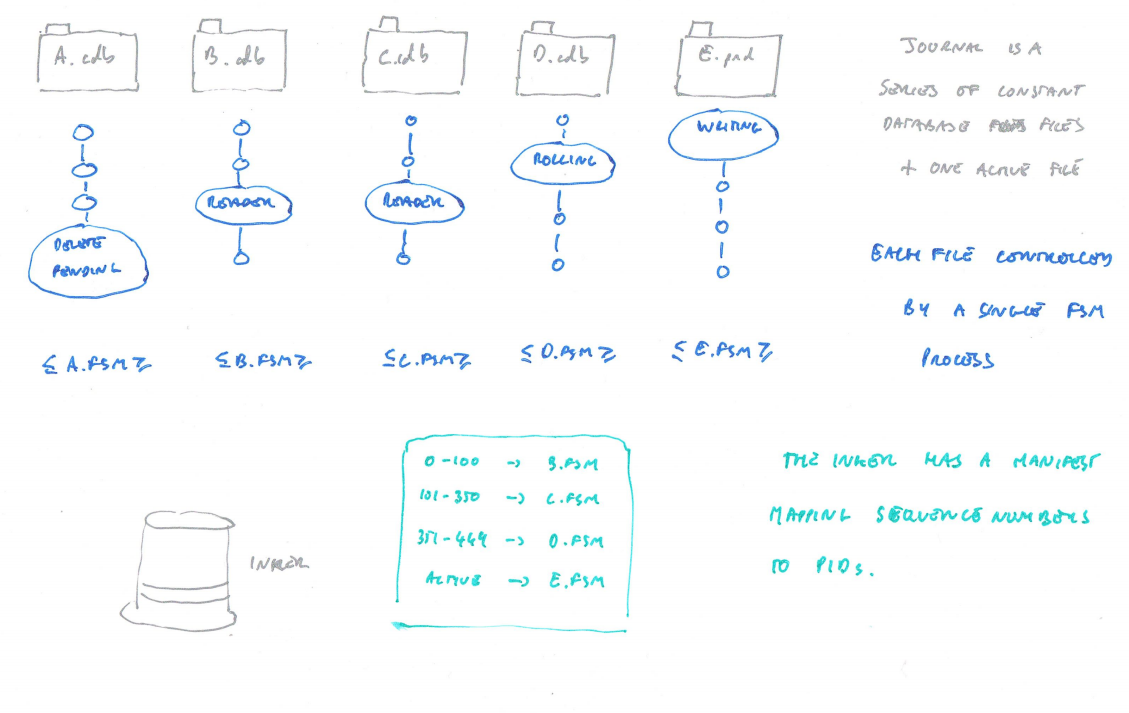 A.cdb
B.cdb
C.cdb
D.cdb
E.pnd
JOURNAL IS A
SERIES OF CONSTANT
DATABASE FILES
+ ONE ACTIVE FILE
WRITING
ROLLING
READER
READER
DELETE
PENDING
EACH FILE CONTROLLED
BY A SINGLE FSM
PROCESS
≤ A.FSM ≥
≤ B.FSM ≥
≤ C.FSM ≥
≤ D.FSM ≥
≤ E.FSM ≥
0-100 -> B.FSM
101-350 -> C.FSM
351-449 -> D.FSM
ACTIVE -> E.FSM
THE INKER HAS A MANIFEST
MAPPING SEQUENCE NUMBERS
TO PIDs.
INKER